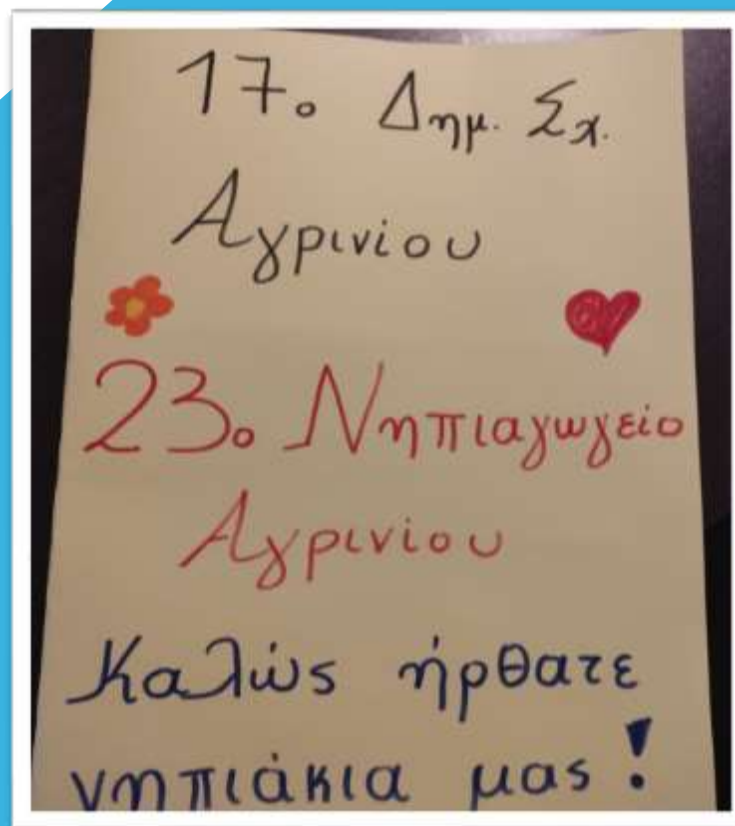 17ο Δημ. Σχ.
Αγρινίου
23ο Νηπιαγωγείο
Αγρινίου
Καλώς ήρθατε
νηπιάκια μας!